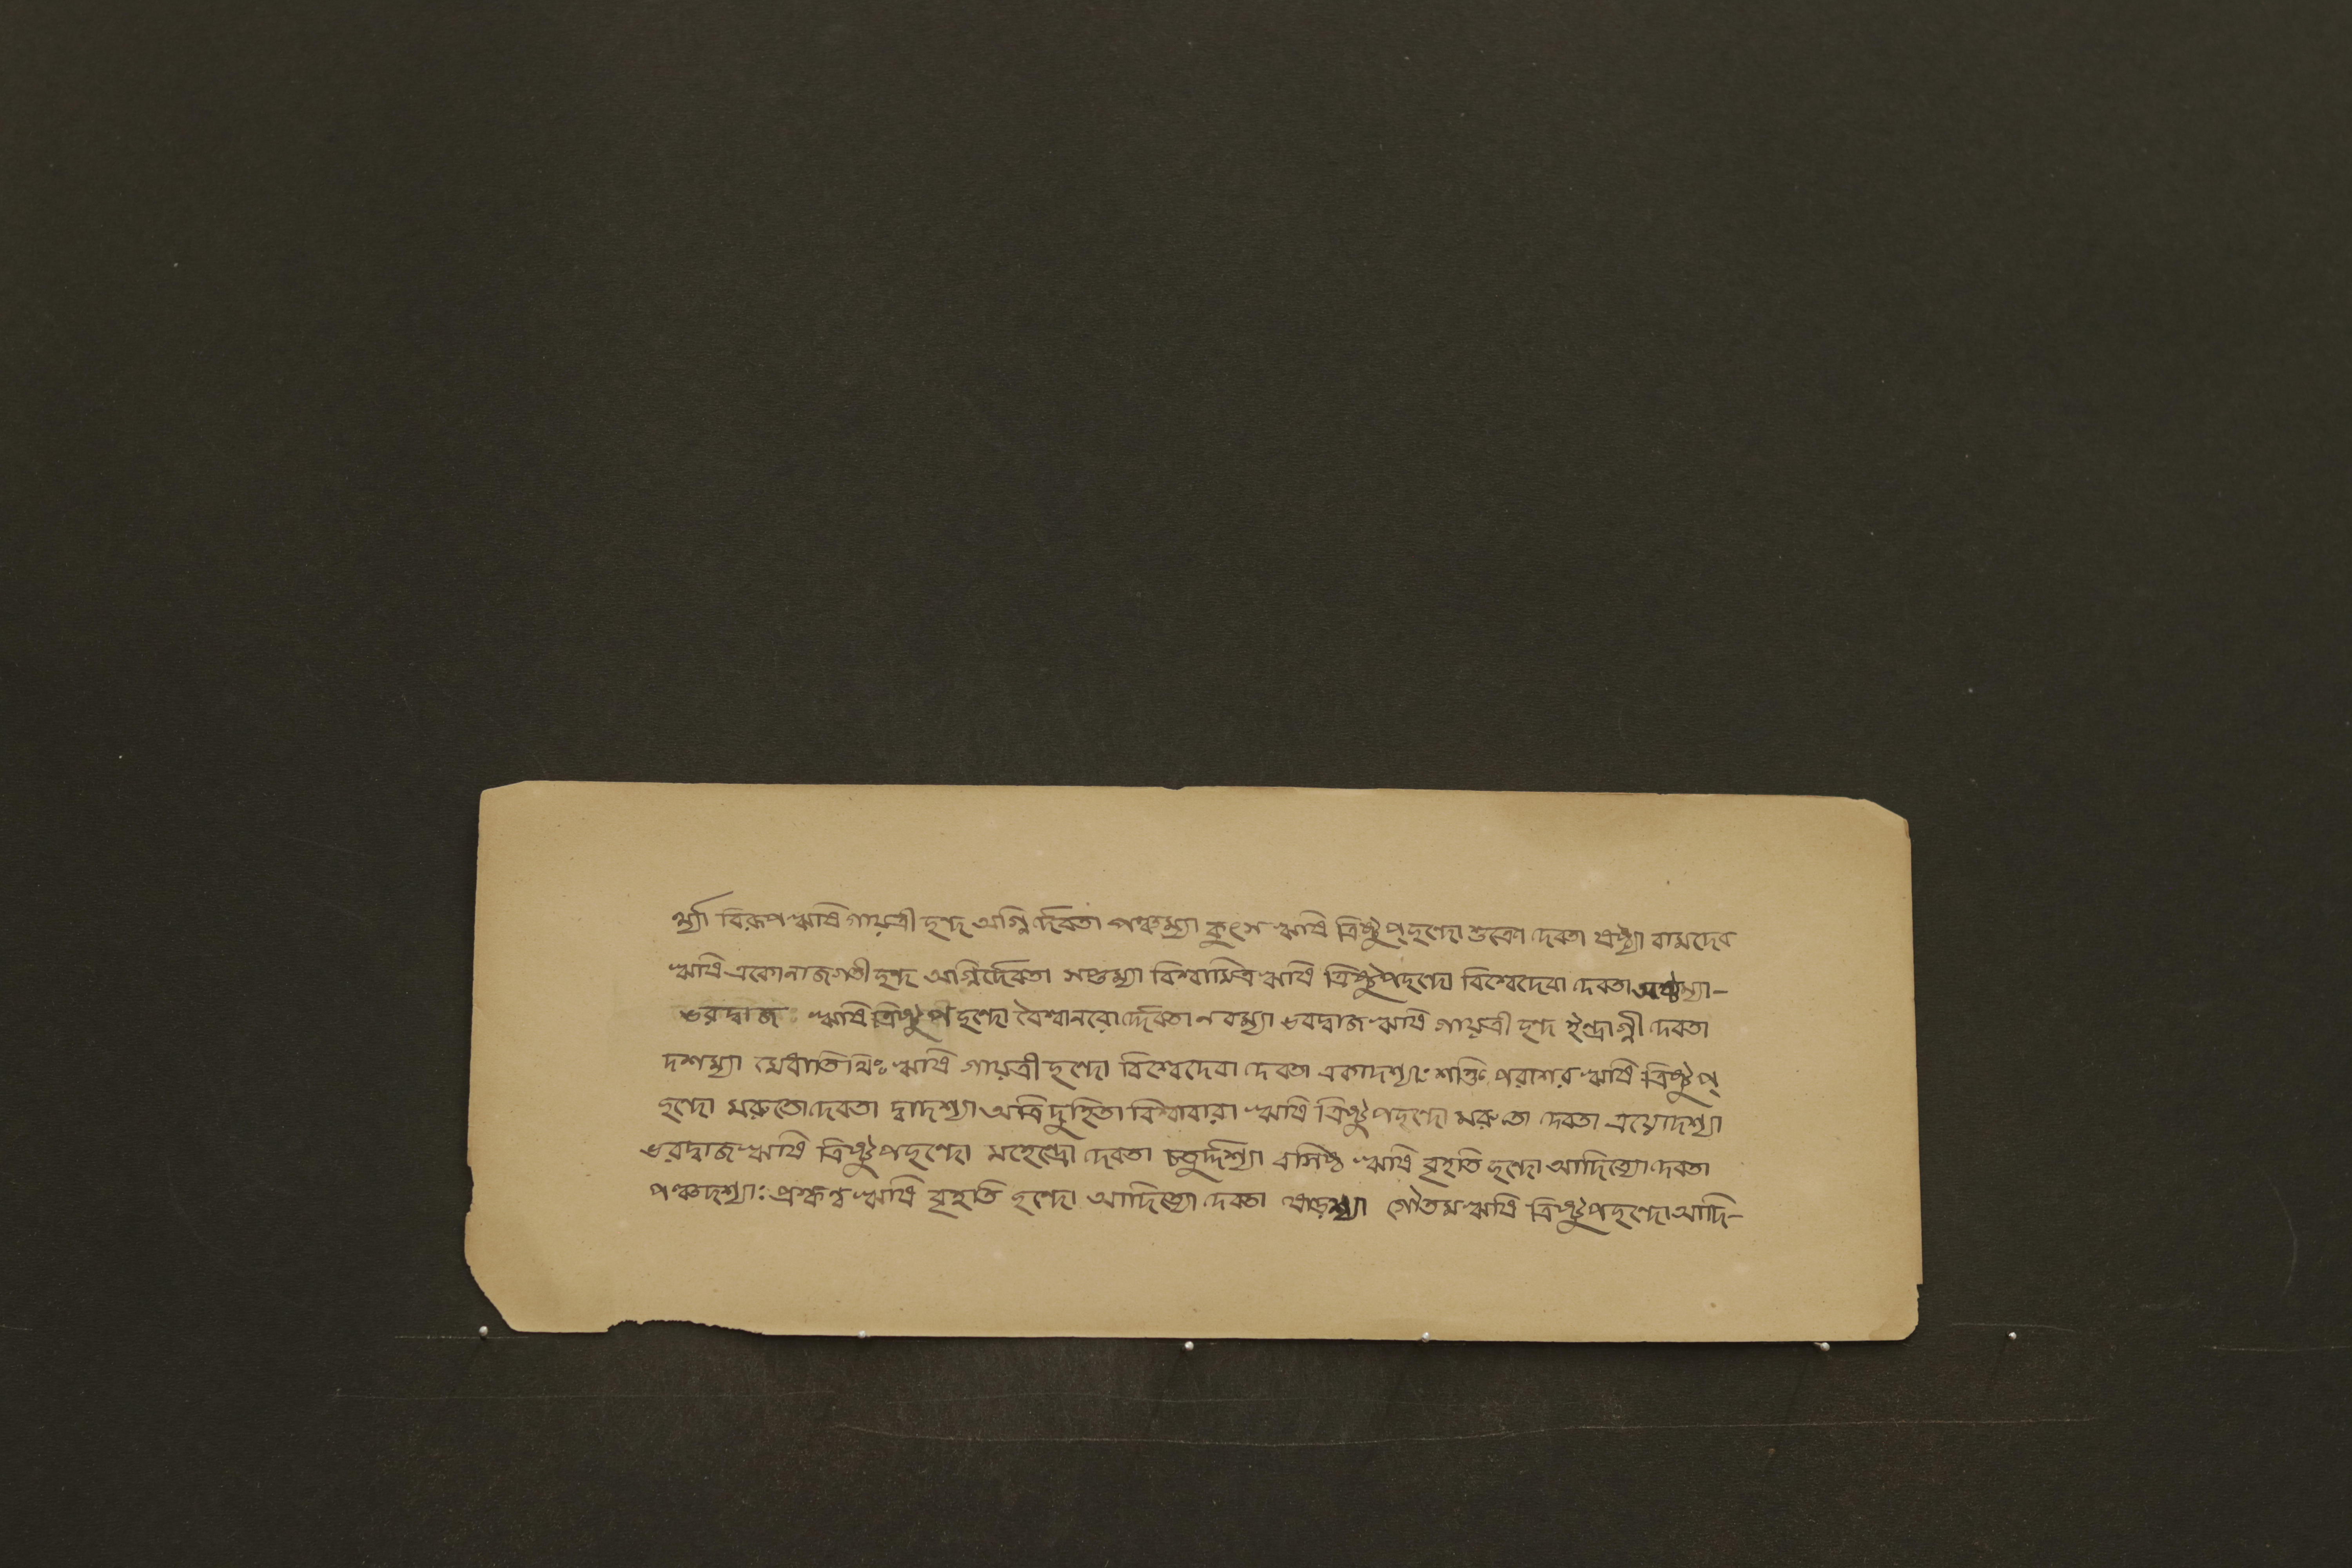 র্থ্যা বিরূপ ঋষি গায়ত্রী ছন্দ অগ্নির্দেবতা পঞ্চম্যা কুৎস ঋষি ত্রিষ্টুপ্ছন্দো শুক্রো দেবতা ষষ্ঠ্যা বামদেব
ঋষি একোনাজগতী ছন্দ অগ্নির্দেবতা সপ্তম্যা বিশ্বামিত্র ঋষি ত্রিষ্টুপছন্দো বিশ্বেদেবা দেবতা অষ্টম্যা-
ভরদ্বাজ ঋষি ত্রিষ্টুপ ছন্দো বৈশ্বানরো র্দ্দেবতা নবম্যা ভরদ্বাজ ঋষি গায়ত্রী ছন্দ ইন্দ্রাগ্নী দেবতা
দশম্যা মেধাতিথিঃ ঋষি গায়ত্রী ছন্দো বিশ্বেদেবা দেবতা একাদশ্যাঃ শক্তি পরাশর ঋষি ত্রিষ্টুপ্
ছন্দো মরুতো দেবতা দ্বাদশ্যা অত্রি দুহিতা বিশ্বাবারা ঋষি ত্রিষ্টুপছন্দো মরুতো দেবতা ত্রয়োদশ্যা
ভরদ্বাজ ঋষি ত্রিষ্টুপছন্দো মহেন্দ্রো দেবতা চতুর্দ্দশ্যা বসিষ্ঠ ঋষি বৃহতি ছন্দো আদিত্যো দেবতা
পঞ্চদশ্যাঃ প্রস্কণ্ব ঋষি বৃহতি ছন্দো আদিত্যো দেবতা ষোড়শ্যা গৌতম ঋষি ত্রিষ্টুপছন্দো আদি-